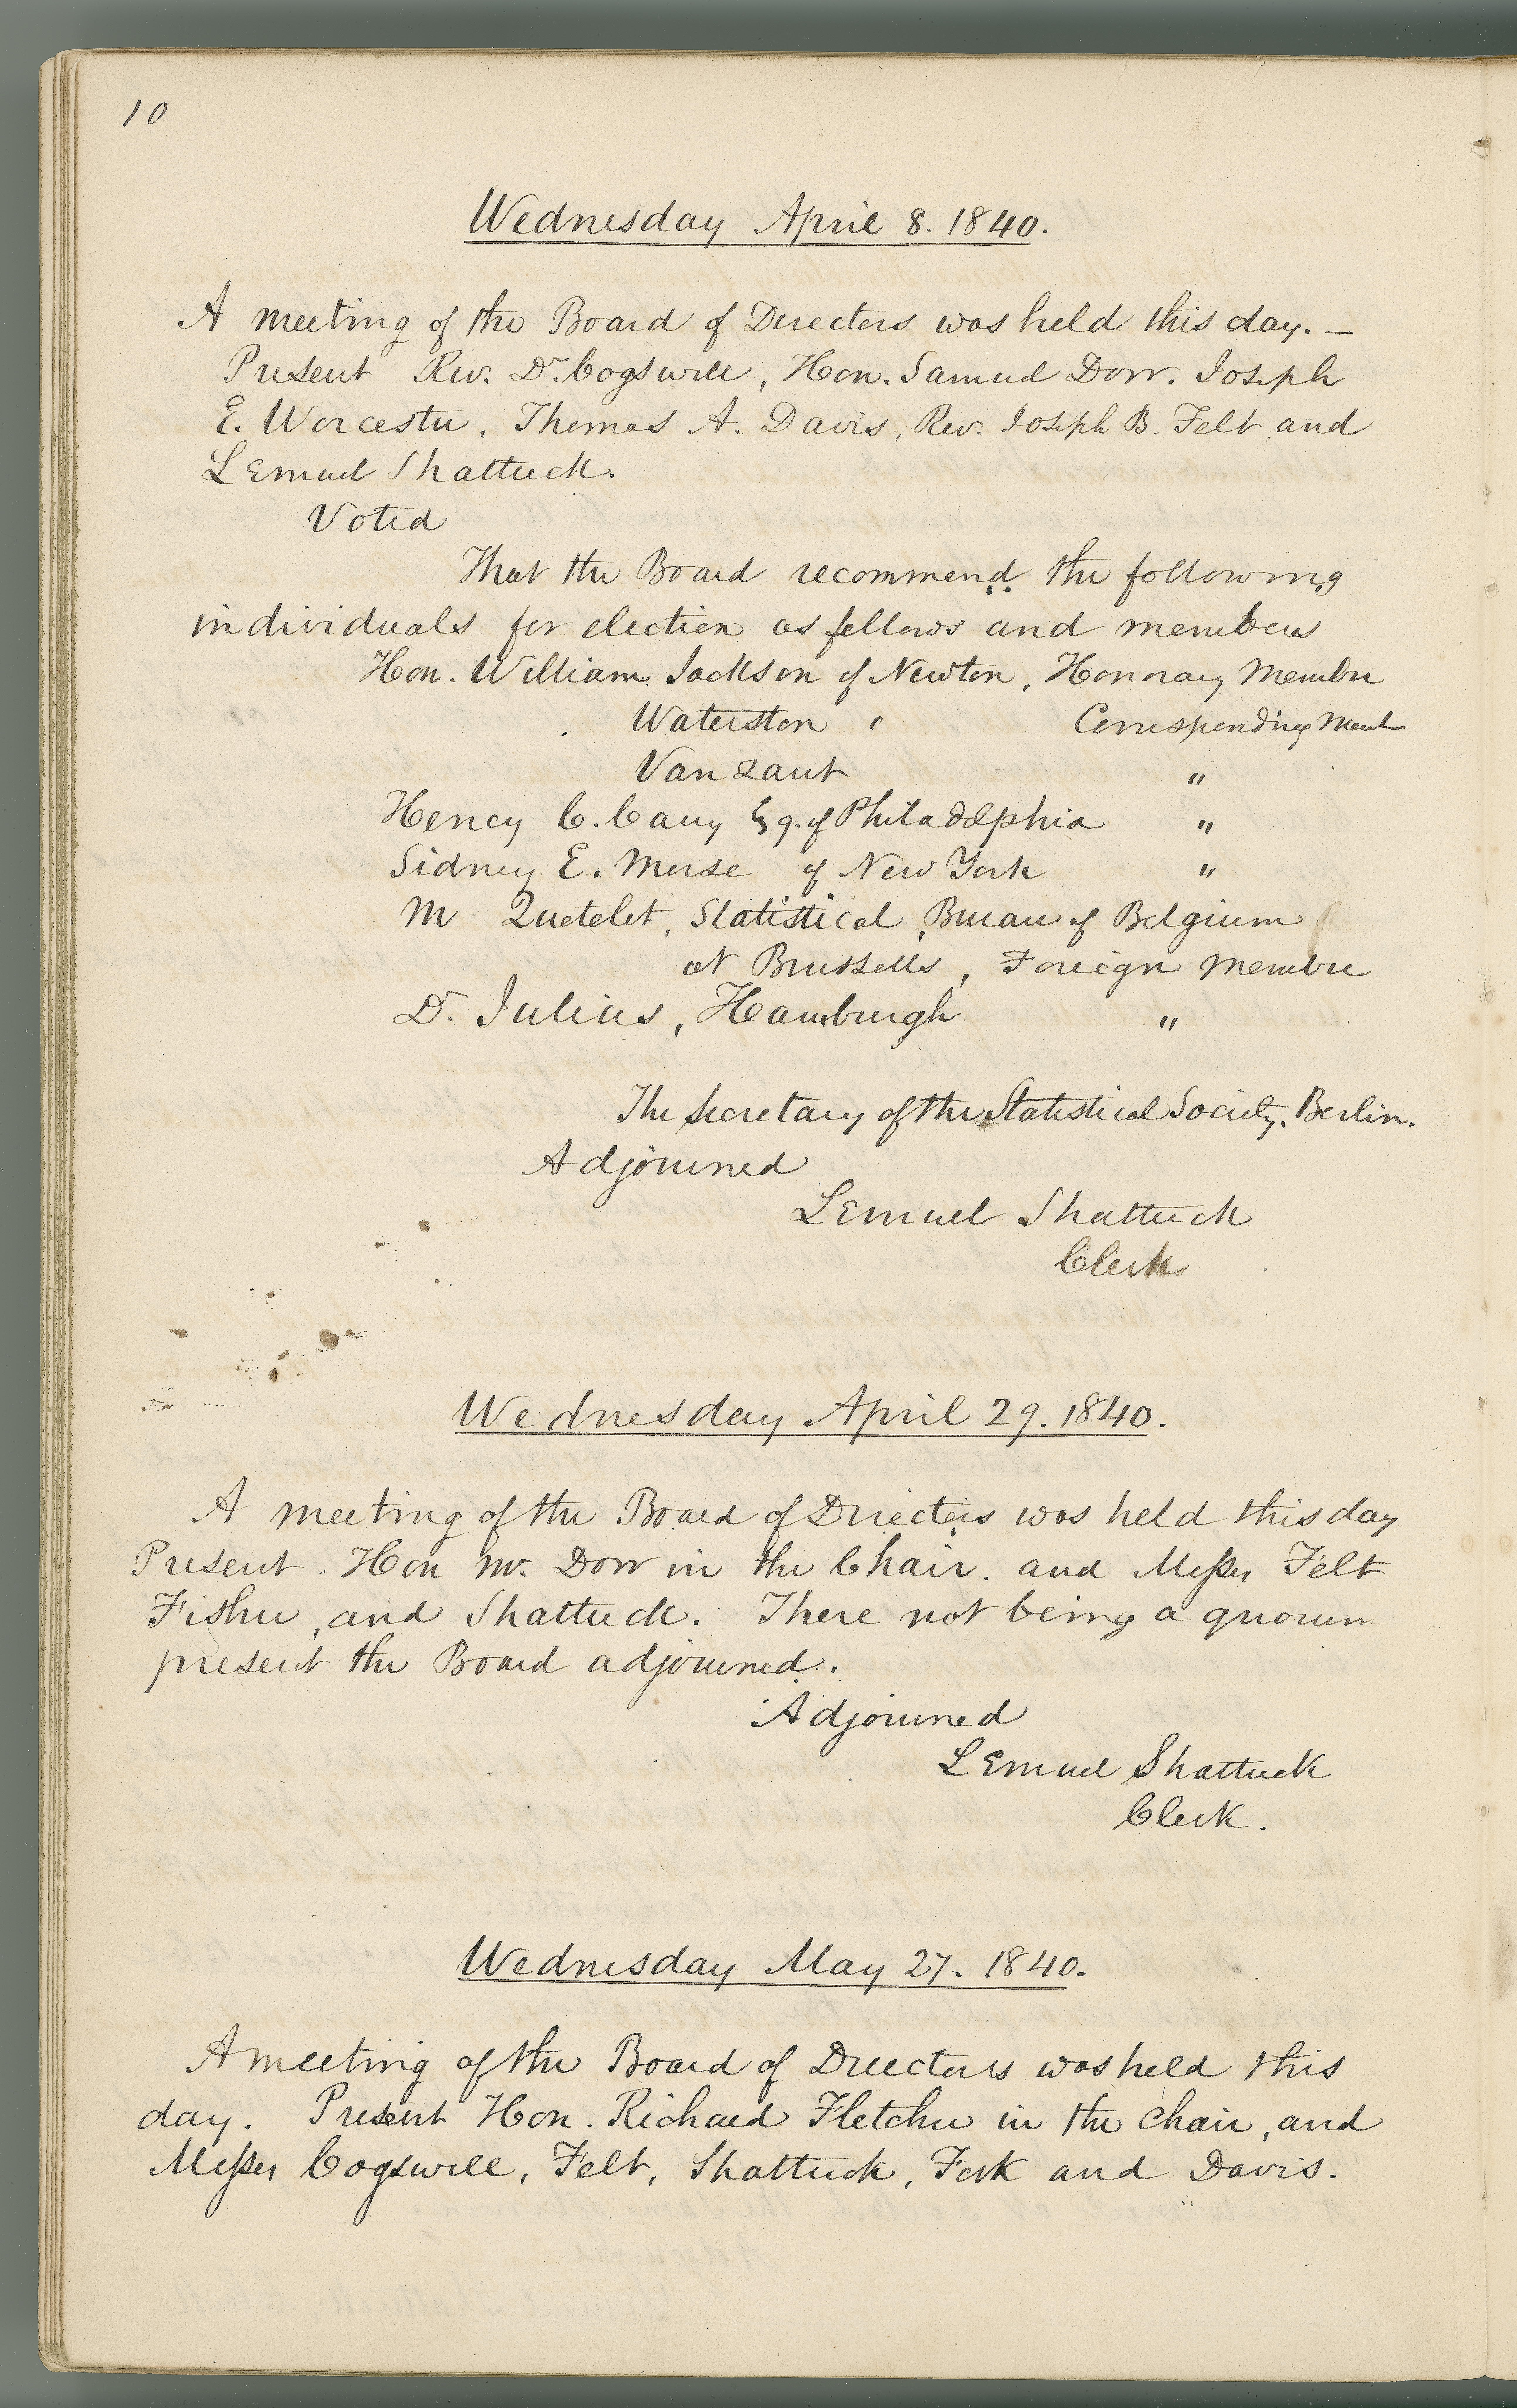 10
Wednesday April 8. 1840.
A meeting of the Board of Directors was held this day. —
Present Rev. Dr. Cogswell, Hon. Samuel Dorr. Joseph
E. Worcester, Thomas A. Davis, Rev. Joseph B. Felt and
Lemuel Shattuck.
Voted
That the Board recommend the following
individuals for election as fellows and members
Hon. William Jackson of Newton, Honorary Member
Waterston " Corresponding Memb
Van Zant "
Henry C. Carey Esq. of Philadelphia "
Sidney E. Morse of New York "
M Quetelet, Statistical, Bureau of Belgium
at Brussells, Foreign Member
D. Julius, Hamburgh "
The Secretary of the Statistical Society, Berlin.
Adjourned
Lemuel Shattuck
Clerk
Wednesday April 29. 1840.
A meeting of the Board of Directors was held this day
Present. Hon Mr. Dorr in the Chair. and Messrs Felt
Fisher, and Shattuck. There not being a quorum
present the Board adjourned.
Adjourned
Lemuel Shattuck
Clerk.
Wednesday May 27. 1840.
A meeting of the Board of Directors was held this
day. Present Hon. Richard Fletcher in the chair, and
Messrs Cogswell, Felt, Shattuck, and Davis.